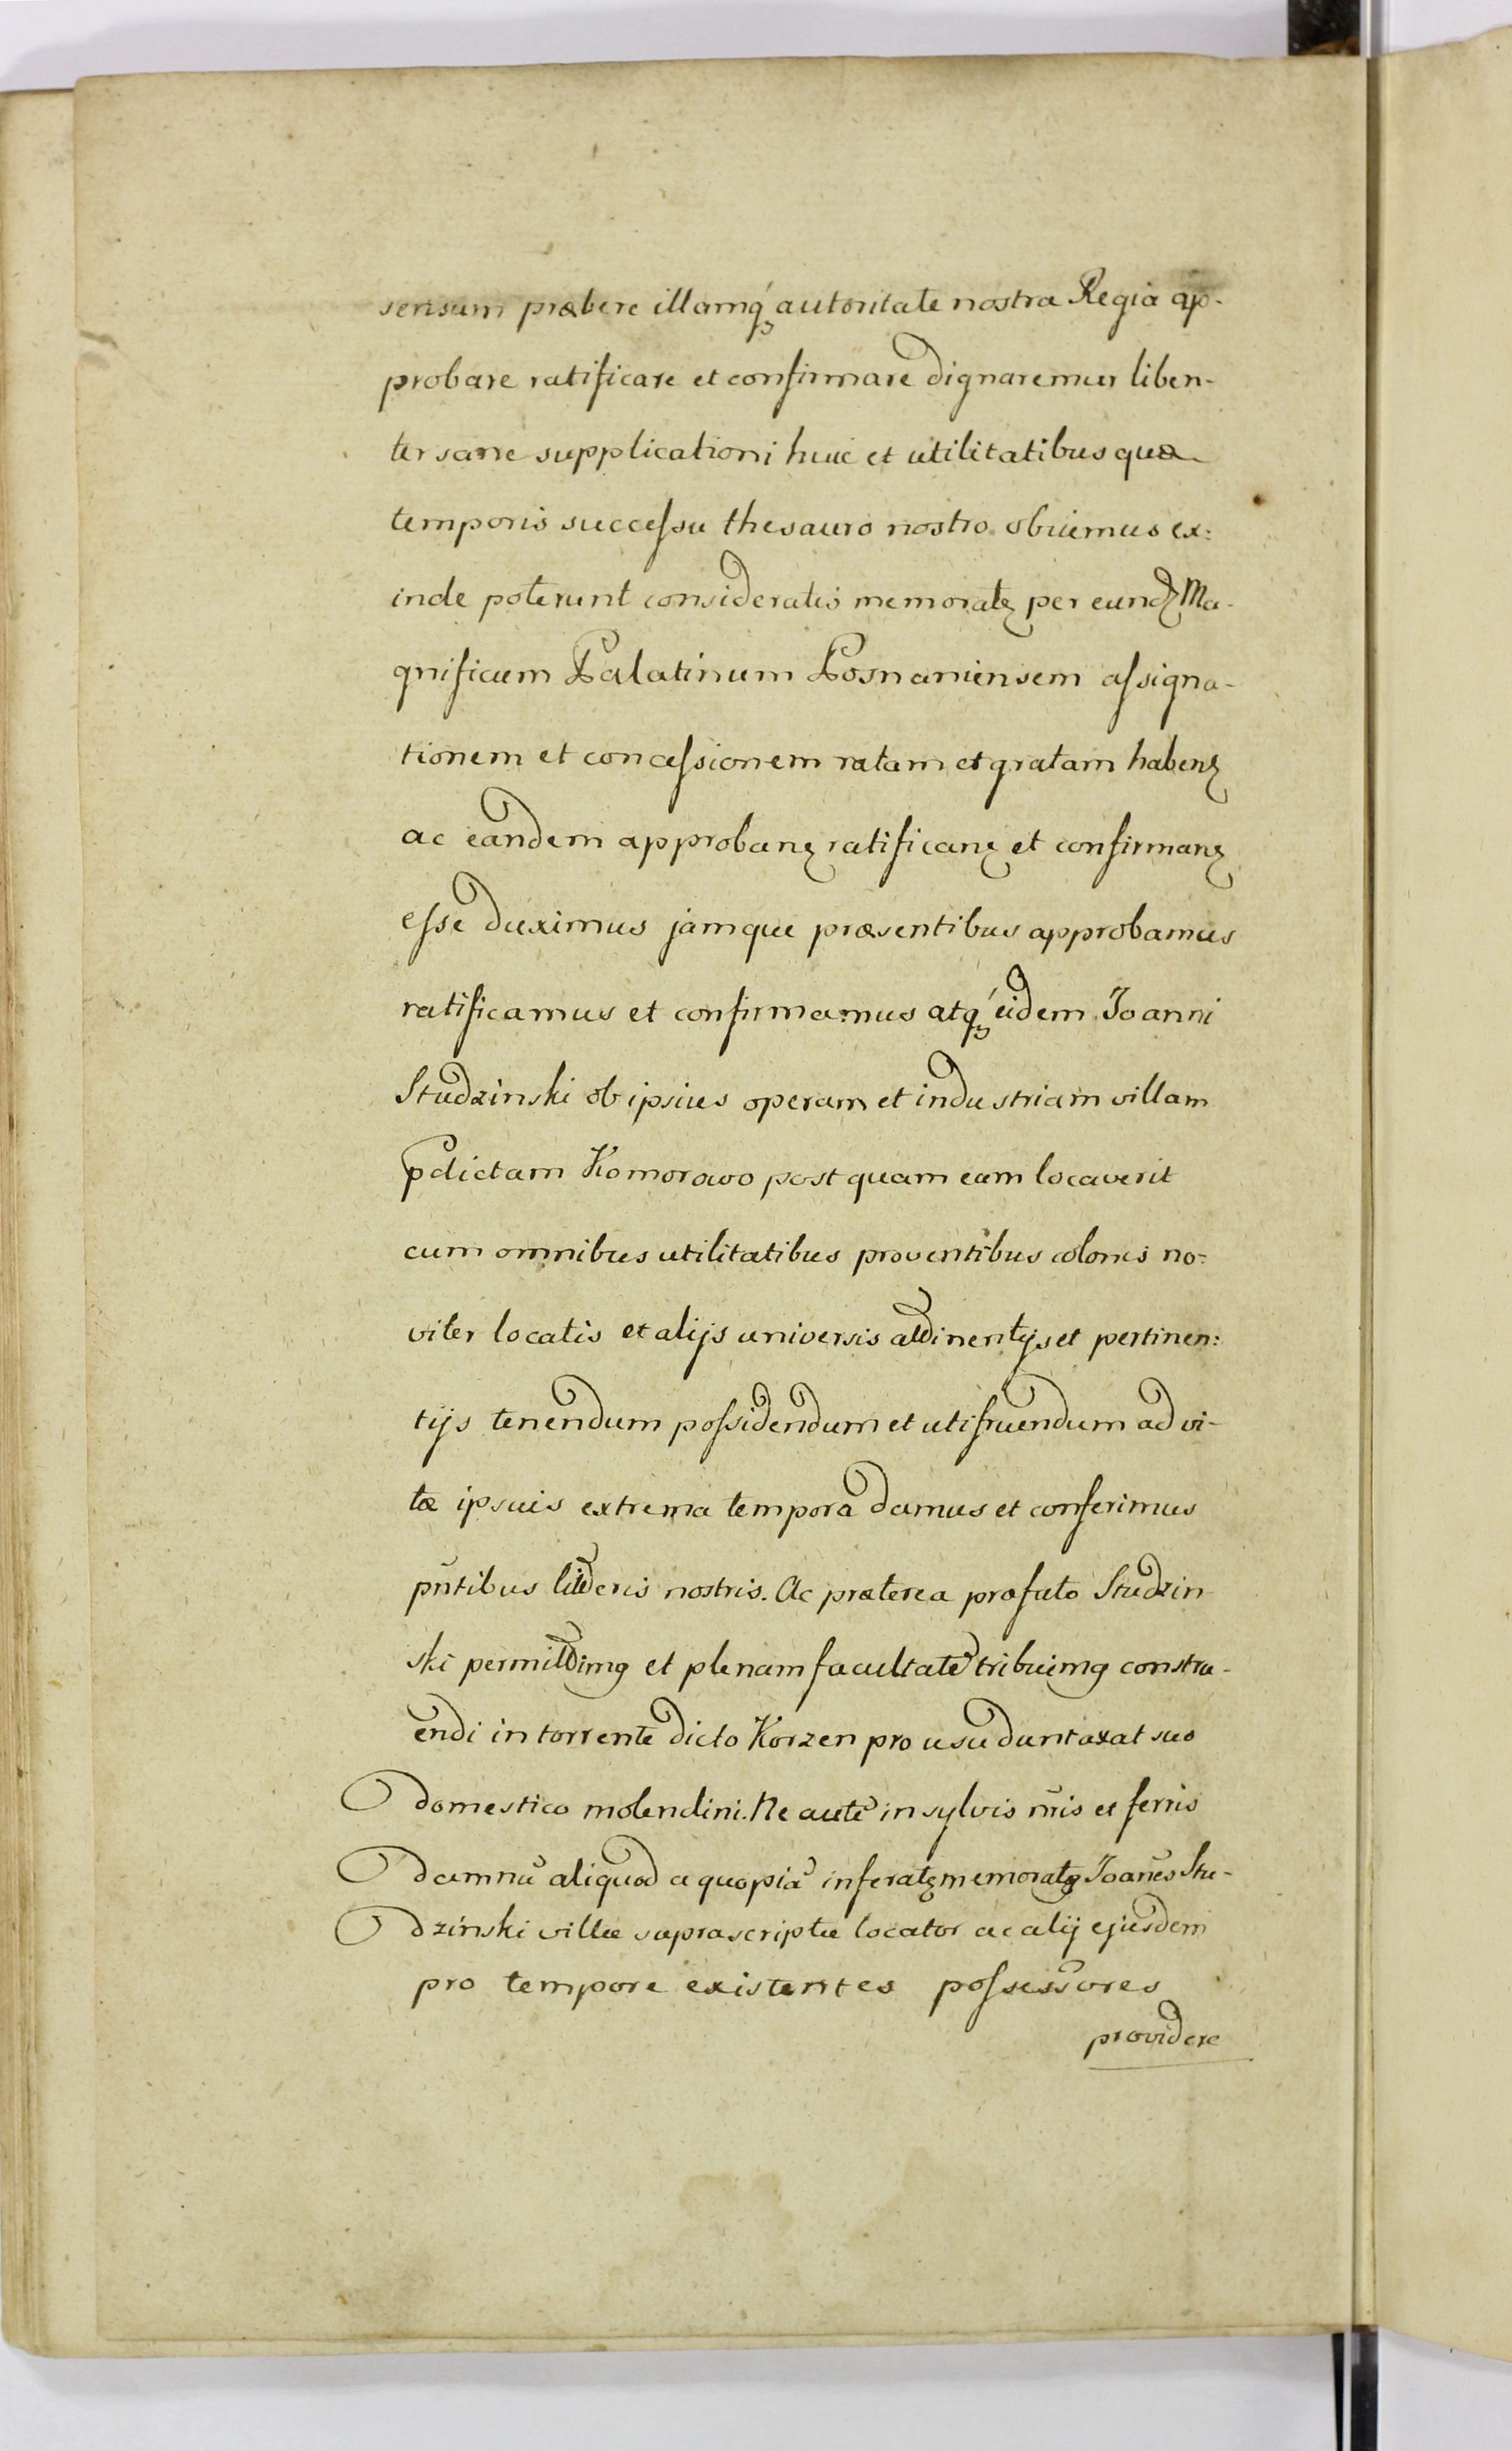 sensum præbere illamq́ꝫ autoritate nostra Regia ap-
probare ratificare et confirmare dignaremur liben-
ter sane supplicationi huic et utilitatibus quæ
temporis succeſsu thesauro nostro obviemus ex:
inde poterunt consideratis memoratꝫ per eundꝫ Ma-
gnificum Palatinum Posnaniensem aſsigna-
tionem et conceſsionem ratam et gratam habenꝫ
ac eandem approbanꝫ ratificanꝫ et confirmanꝫ
eſse duximus jamque præsentibus approbamus
ratificamus et confirmamus atq́ꝫ eidem Joanni
Studzinski ob ipsius operam et industriam villam
pdictam Komorowo postquam eam locaverit
cum omnibus utilitatibus proventibus colonis no-
viter locatis et alijs universis attinentijs et pertinen:
tijs tenendum poſsidendum et utifruendum ad vi-
tæ ipsuis extrema tempora damus et conferimus
pn̄tibus litteris nostris. Ac præterea præfato Studzin
ski permittimꝰ et plenam facultatē tribuimꝰ constru-
endi in torrente dicto Korzen pro usu duntaxat suo
domestico molendini. Ne autē in sylvis nr̄is et ferris
damnū aliquod a quopiā inferatꝫ memoratꝰ Joañes Stu-
dzinski villæ suprascriptæ locator ac alij ejusdem
pro tempore existentes poſsessores
providere